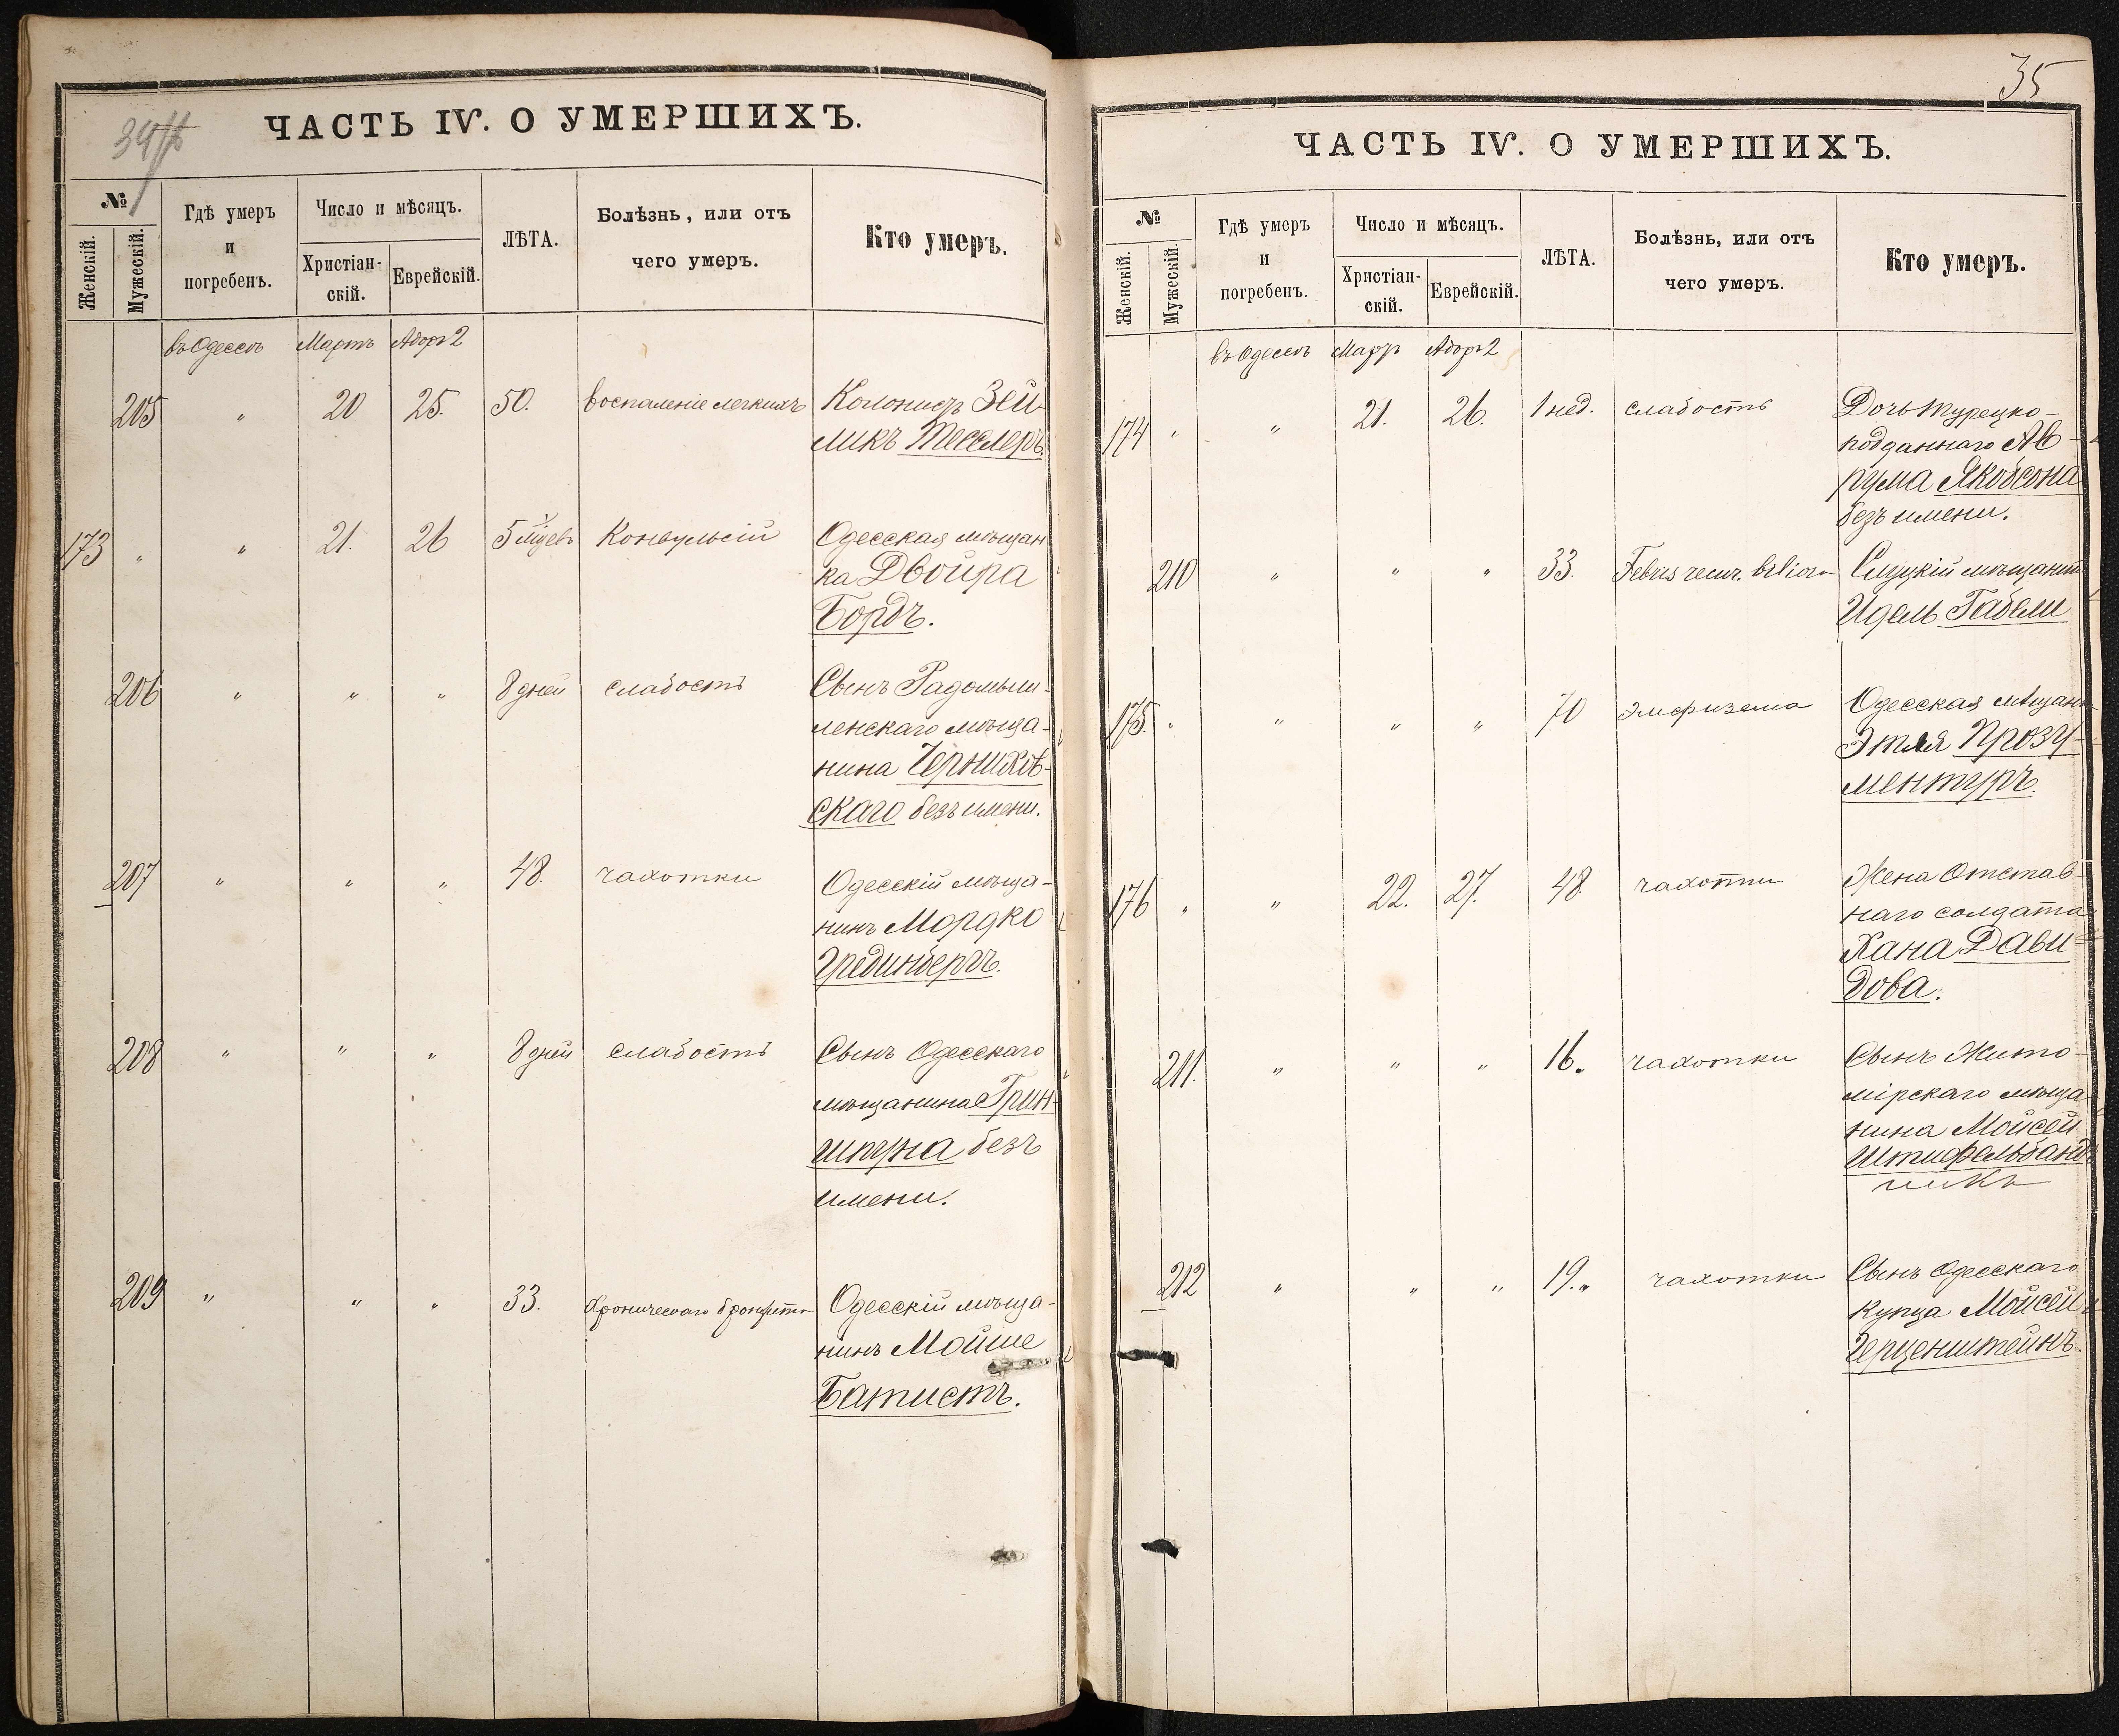 ЧАСТЬ IV. О УМЕРШИХЪ.
№
Женскій.
Мужескій.
Гдѣ умеръ
и
погребенъ.
Число и мѣсяцъ.
Христіан-
скій.
Еврейскій.
ЛѢТА.
Болѣзнь, или отъ
чего умеръ.
Кто умеръ.
въ Одессѣ Мартъ Адоръ 2
205 " 20 25. 50. воспаленіе легкихъ Колонистъ Зей-
ликъ Тесслеръ.
173 " " 21. 26 5 мѣсяцевъ Конвульсій Одесская мѣщан
ка Двойра
Бордъ.
206 " " " 8 дней слабость Сынъ Радомыш-
ленскаго мѣща-
нина Черняхов-
скаго безъ имени.
207 " " " 48. чахотки Одесскій мѣща-
нинъ Мордко
208 " " " 8 дней слабость Сынъ Одесскаго
мѣщанина Грин-
шпуна безъ
имени.
209 " " " 33. Хроническаго бронхита Одесскій мѣща-
нинъ Мойше
Батистъ.
35
ЧАСТЬ IV. О УМЕРШИХЪ.
№
Женскій.
Мужескій.
Гдѣ умеръ
и
погребенъ.
Число и мѣсяцъ.
Христіан-
скій.
Еврейскій.
ЛѢТА.
Болѣзнь, или отъ
чего умеръ.
Кто умеръ.
въ Одессѣ Мартъ Адоръ 2
174 " " 21. 26. 1 нед. слабость Дочь турецко-
подданнаго Ав-
рума Якобсона
безъ имени.
210 " " " 33. Febris recur. biliosa Слуцкій мѣщанинъ
Идель Габели
175. " " " " 70 эмфизема Одесская мѣщан
Этля Прозу-
ментуръ.
176 " " 22. 27. 48 чахотки Жена Отстав-
наго солдата
Хана Дави-
дова.
211. " " " 16. чахотки Сынъ Жито-
мірскаго мѣща
нина Мойсей
Штифельбанд
чикъ
212 " " " 19. чахотки Сынъ Одесскаго
Купца Мойсей
Герценштейнъ.